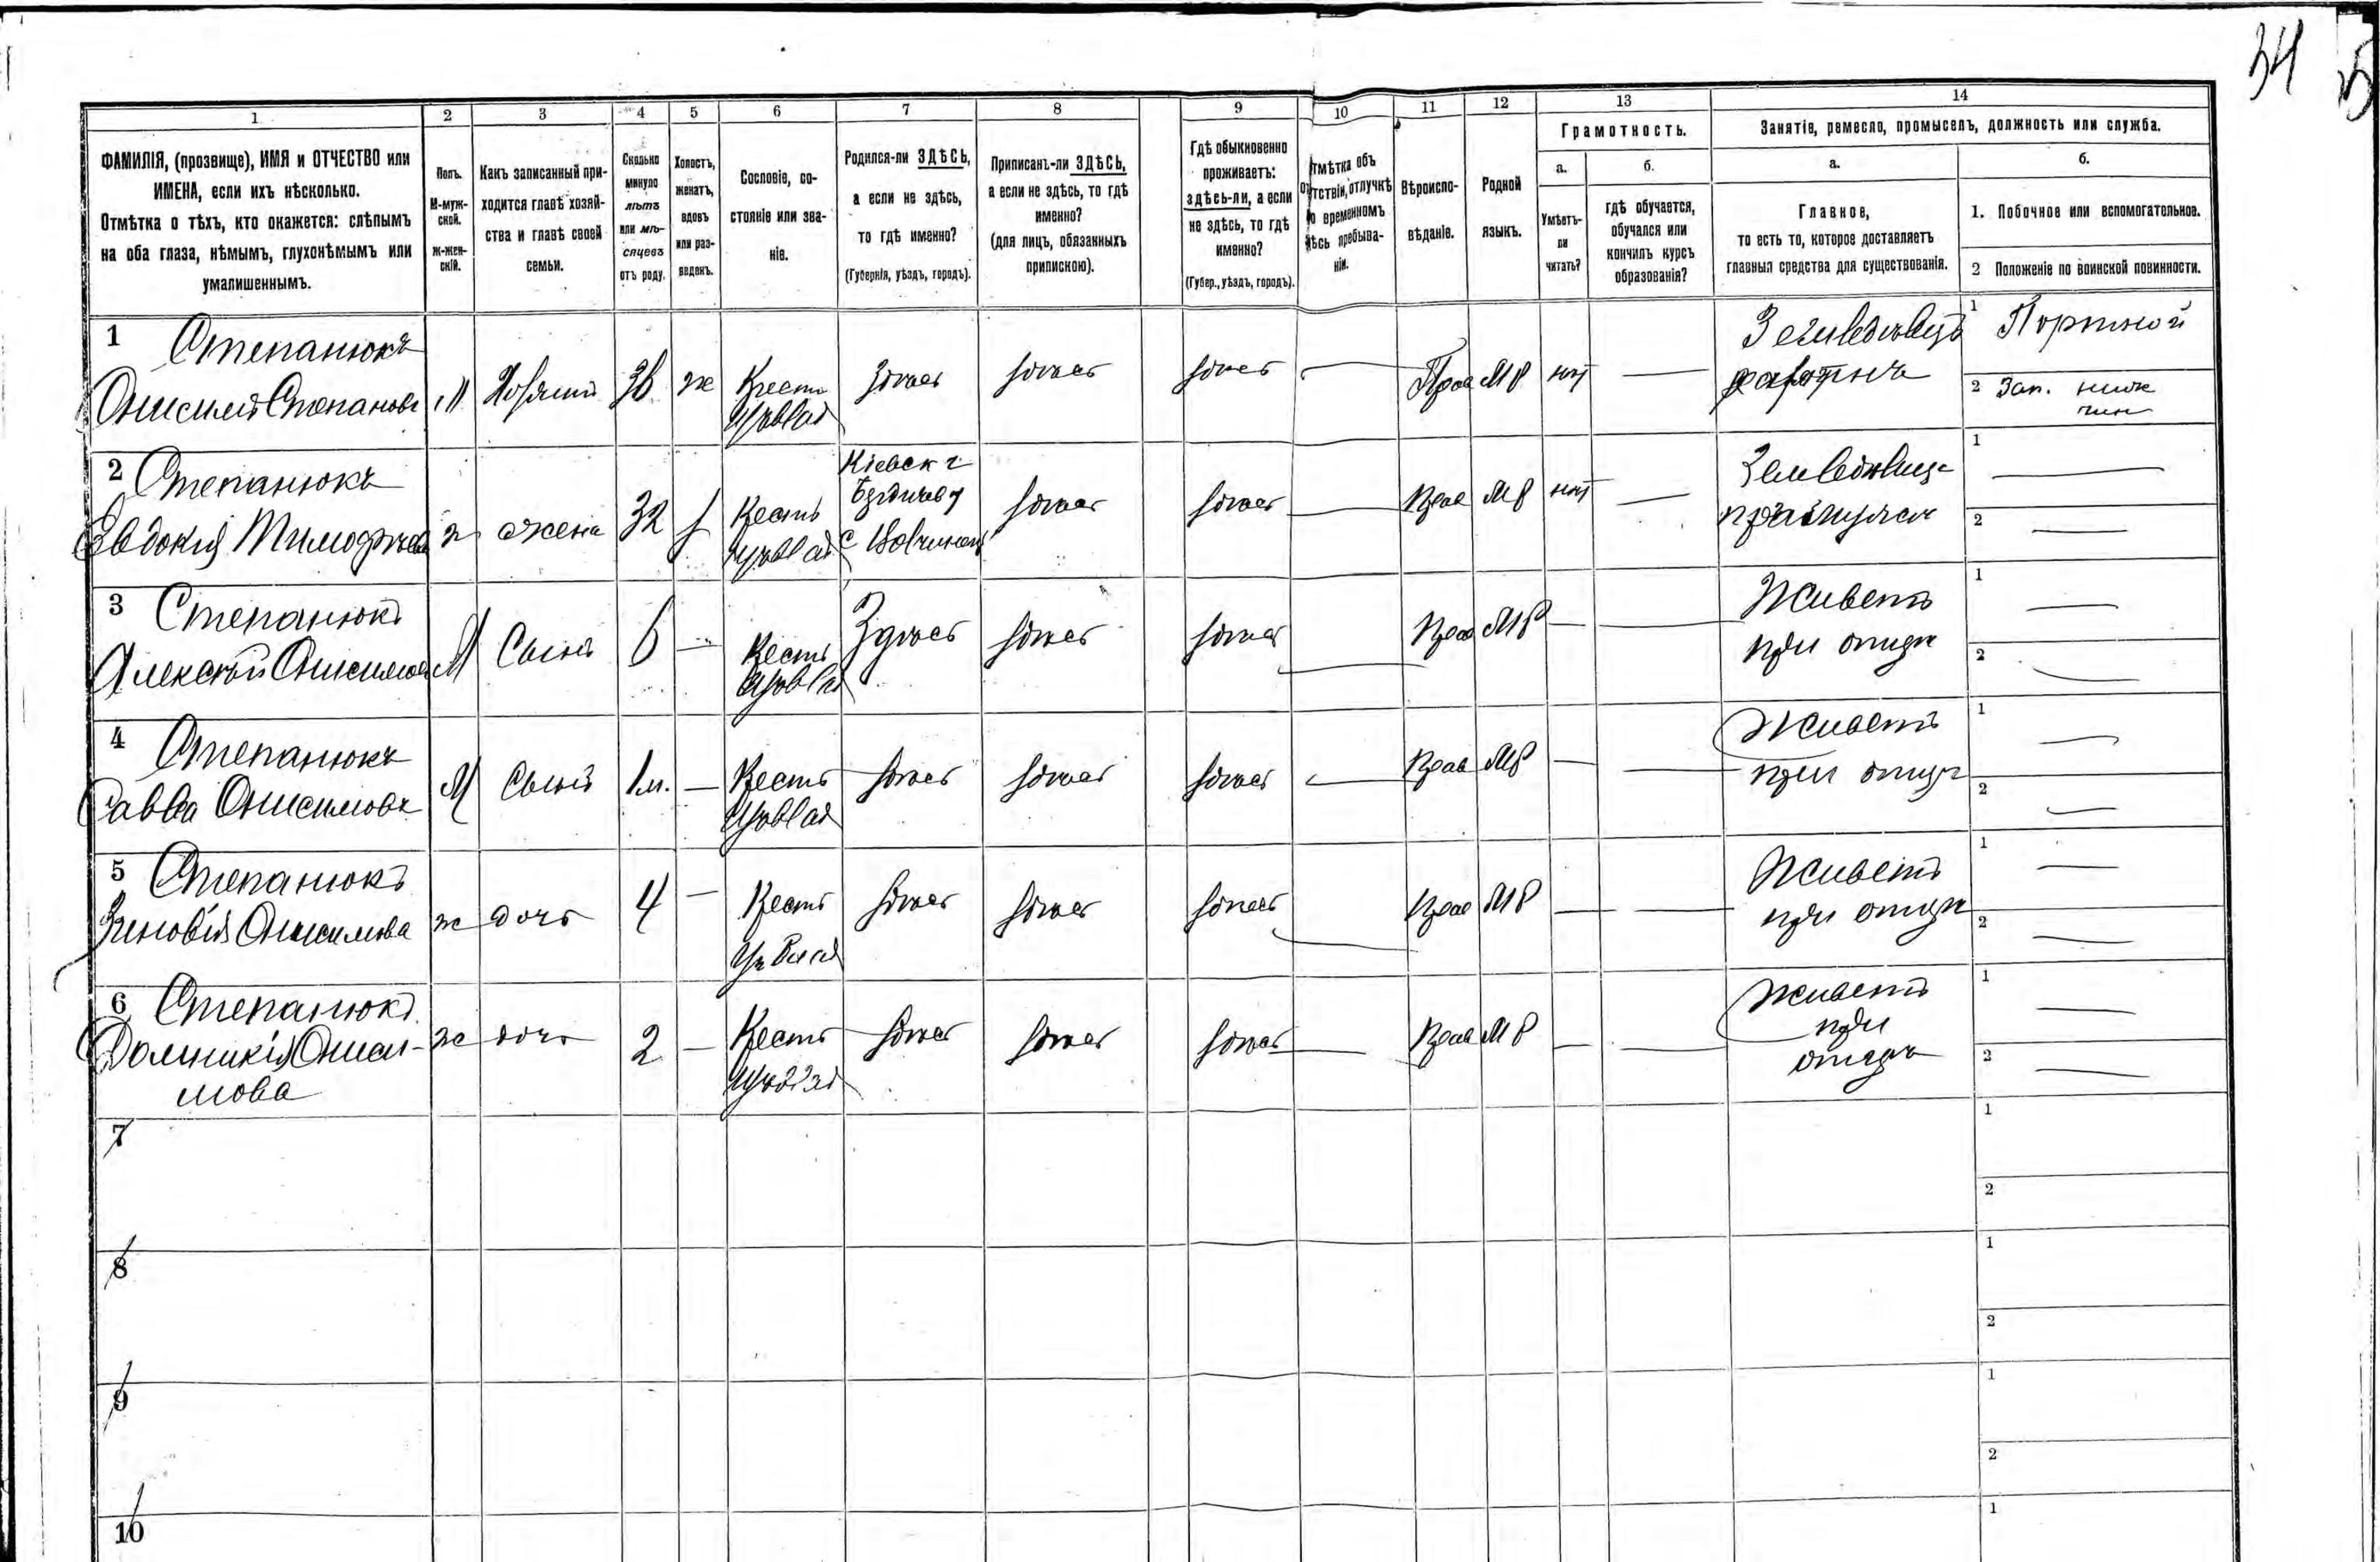 34
1 2 3 4 5 6 7 8 9 10 11 12 13 14
ФАМИЛІЯ, (прозвище), ИМЯ и ОТЧЕСТВО или
ИМЕНА, если ихъ нѣсколько.
Отмѣтка о тѣхъ, кто окажется: слѣпымъ
на оба глаза, нѣмымъ, глухонѣмымъ или
умалишеннымъ.
Полъ.
М-муж-
ской.
Ж-жен-
скій.
Какъ записанный при-
ходится главѣ хозяй-
ства и главѣ своей
семьи.
Сколько
минуло
лѣтъ
или мѣ-
сяцевъ
отъ роду.
Холостъ,
женатъ,
вдовъ
или раз-
веденъ.
Сословіе, со-
стояніе или зва-
ніе.
Родился-ли ЗДѢСЬ,
а если не здѣсь,
то гдѣ именно?
(Губернія, уѣздъ, городъ).
Приписанъ-ли ЗДѢСЬ,
а если не здѣсь, то гдѣ
именно?
(для лицъ, обязанныхъ
припискою).
Гдѣ обыкновенно
проживаетъ:
здѣсь-ли, а если
не здѣсь, то гдѣ
именно?
(Губер., уѣздъ, городъ).
Отмѣтка объ
отсутствіи, отлучкѣ
о временномъ
здѣсь пребыва-
ніи.
Вѣроиспо-
вѣданіе.
Родной
языкъ.
Грамотность.
а.
Умѣетъ-
ли
читать?
б.
гдѣ обучается,
обучался или
кончилъ курсъ
образованія?
Занятіе, ремесло, промыселъ, должность или служба.
а.
Главное,
то есть то, которое доставляетъ
главныя средства для существованія.
б.
1. Побочное или вспомогательное.
2 Положеніе по воинской повинности.
1 Степанюкъ
Онисимъ Степановъ М Хозяинъ ж Крест здѣсь здѣсь здѣсь — Прав МР нѣт — 1 Портной
2 Зап. ниж
чин
2 Степанюкъ
Евдокия Тимофѣева ж жена 32 Крестъ
Кіевск г
Бердичев у
с здѣсь здѣсь — Прав МР нѣт — 1 —
2 —
3 Степанюкъ
Алексѣй Онисимов М Сынъ 6 — Крестъ Здѣсь здѣсь здѣсь — Прав МР — — Живетъ
при отцѣ 1 —
2 —
4 Степанюкъ
Савва Онисимовъ М Сынъ 1м. — Крестъ здѣсь здѣсь здѣсь — Прав МР — — Живетъ
при отцѣ 1 —
2 —
5 Степанюкъ
Зиновія Онисимова ж дочь 4 — Крестъ здѣсь здѣсь здѣсь — Прав МР — — Живетъ
при отцѣ 1 —
2 —
6 Степанюкъ
Домникія Ониси-
мова ж дочь 2 — Крестъ здѣсь здѣсь здѣсь — Прав МР — — Живетъ
при
отцѣ 1 —
2 —
7 1
2
8 1
2
9 1
2
10 1